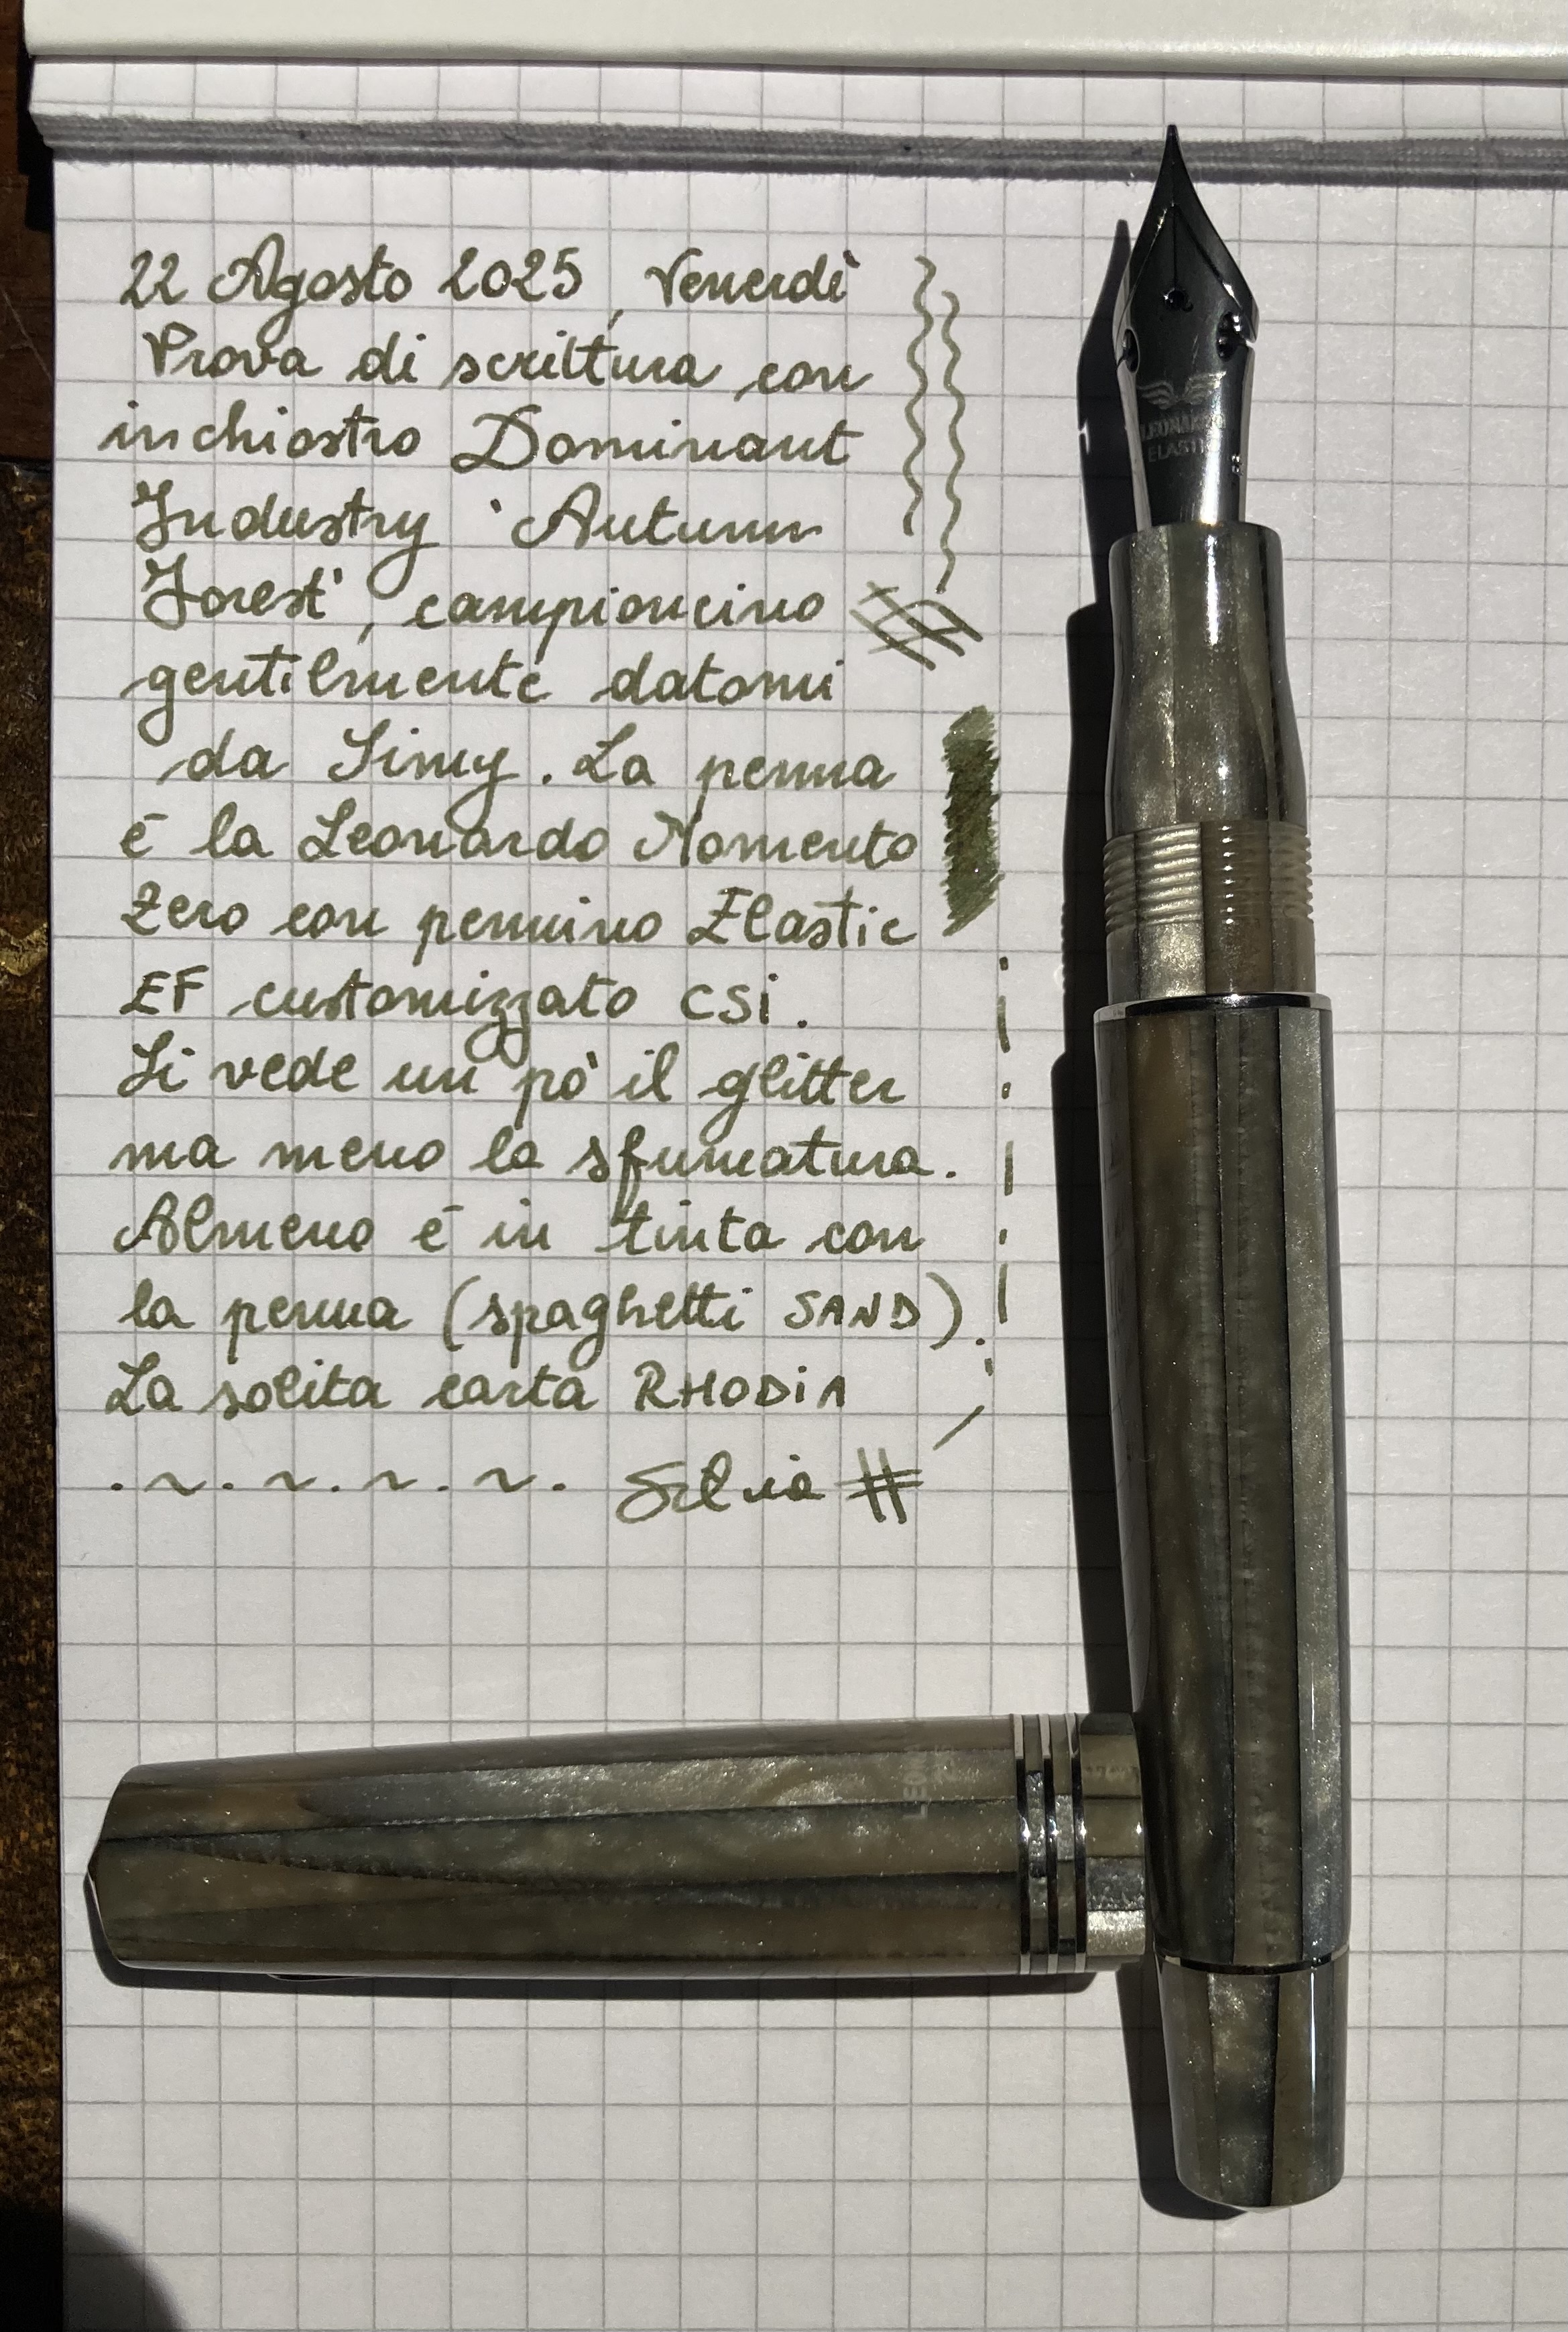 22 Agosto 2025, Venerdì
Prova di scrittura con
inchiostro Dominant
Industry 'Autumn
Forest', campioncino
gentilmente datomi
da Simy. La penna
è la Leonardo Momento
Zero con pennino Elastic
EF customizzato CSi.
Si vede un pò il glitter
ma meno la sfumatura.
Almeno è in tinta con
la penna (spaghetti SAND).
La solita carta RHODiA
Silvia #
LEONARDO
ELASTIC